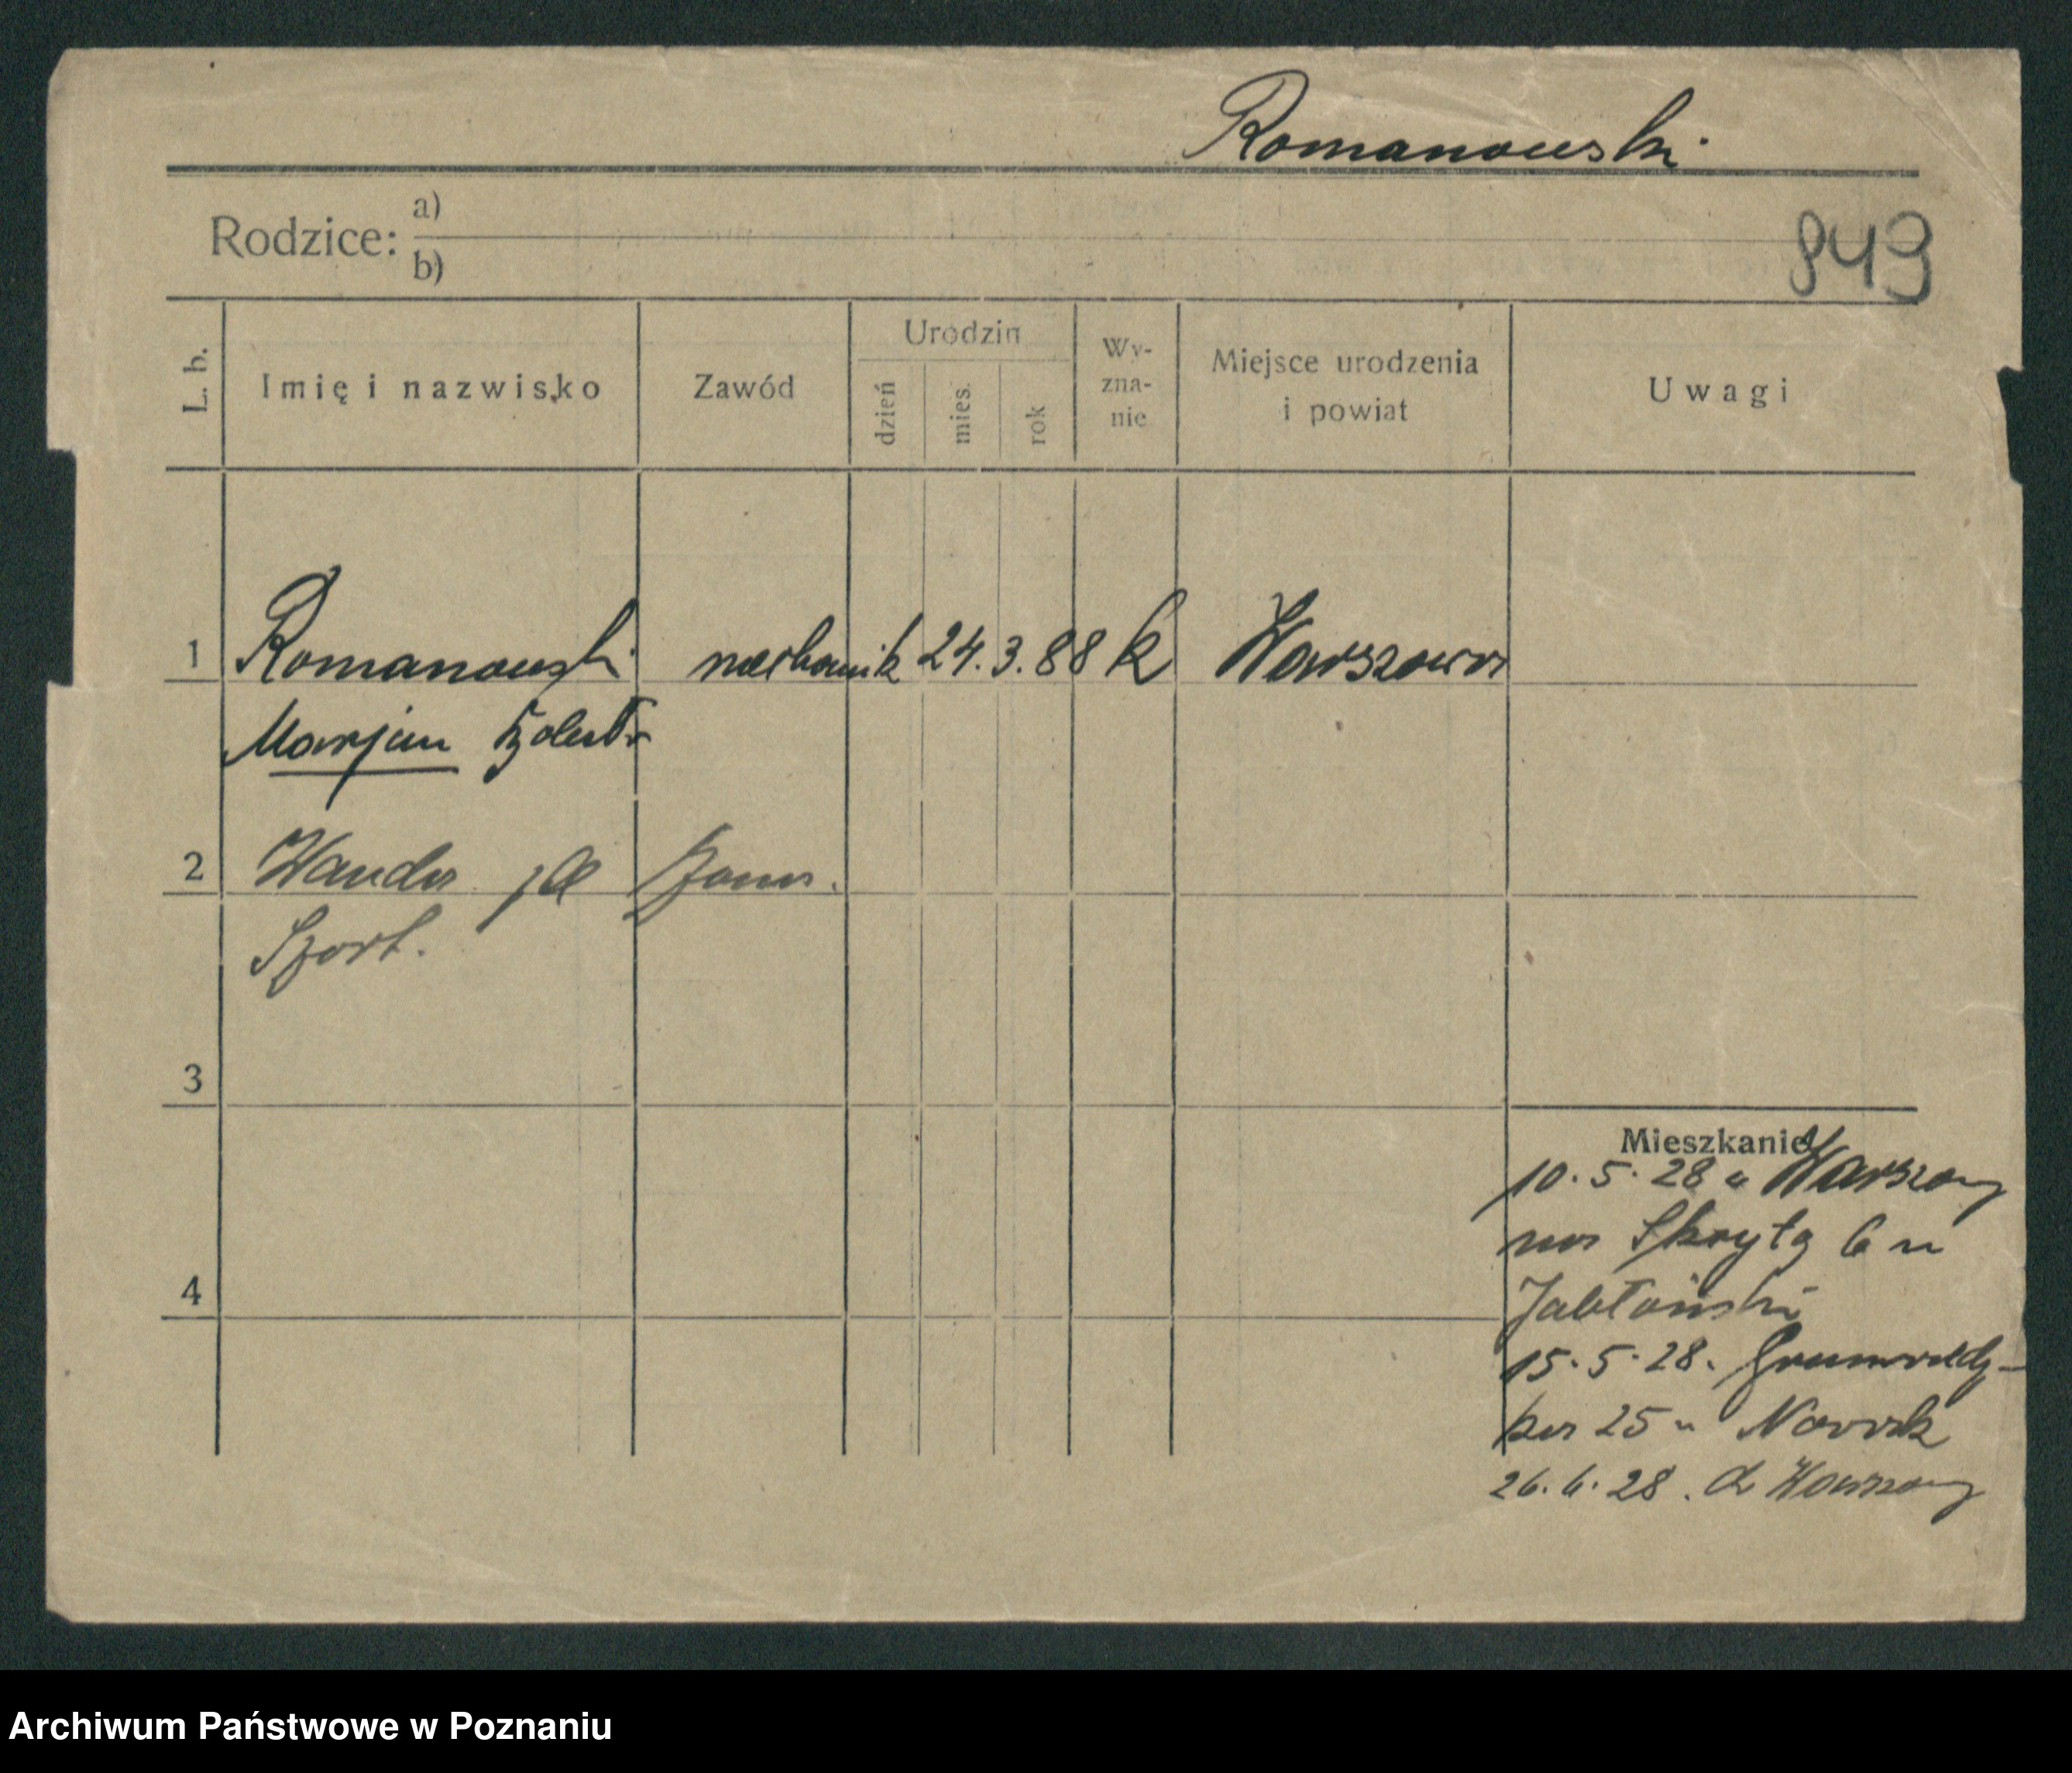 Romanowski
Rodzice: a)
b)
843
L. b.
Imię i nazwisko
Zawód
Urodzin
dzień
mies.
rok
Wy-
zna-
nie
Miejsce urodzenia
i powiat
Uwagi
1 Romanowski mechanik 24. 3. 88 k Warszawa
Marjan
2 Wanda
3
Mieszkanie
10. 5. 28 Warszawy
na Skryta 6 u
Jabłoński
4
15. 5. 28. Grunwaldz-
ka 25 u Nowak
26. 6. 28. do Warszawy
Archiwum Państwowe w Poznaniu